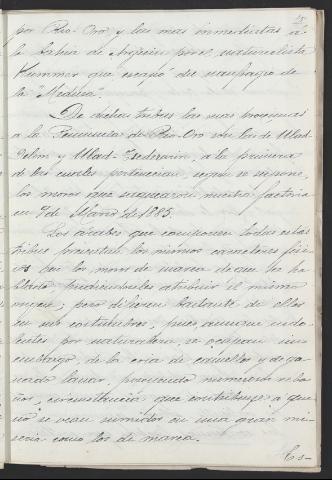 por Rio-Oro y las mas inmediatas á
la bahia de Arguin por el naturalista
Kummer que escapó del naufragio de
la "Medusa".
De dichas tribus las mas proximas
a la Peninsula de Rio-Oro son las de Ulad-
Delim y Ulad- a la primera
de las cuales pertenecian, segun se supone,
los moros que saquearon nuestra factoria
en 9 de Marzo de 1885.
Los árabes que componen todas estas
tribus presentan los mismos caracteres fisi-
cos que los moros de marea de que he ha-
blado pudiendoseles atribuir el mismo
origen; pero difieren bastante de ellos
en sus costumbres, pues aunque indo-
lentes por naturaleza, se ocupan sin
embargo, de la cria de camellos y de ga-
nado lanar, poseyendo numerosos reba-
ños, circunstancia que contribuye a que
no se vean sumidos en una gran mi-
seria como los de marea.